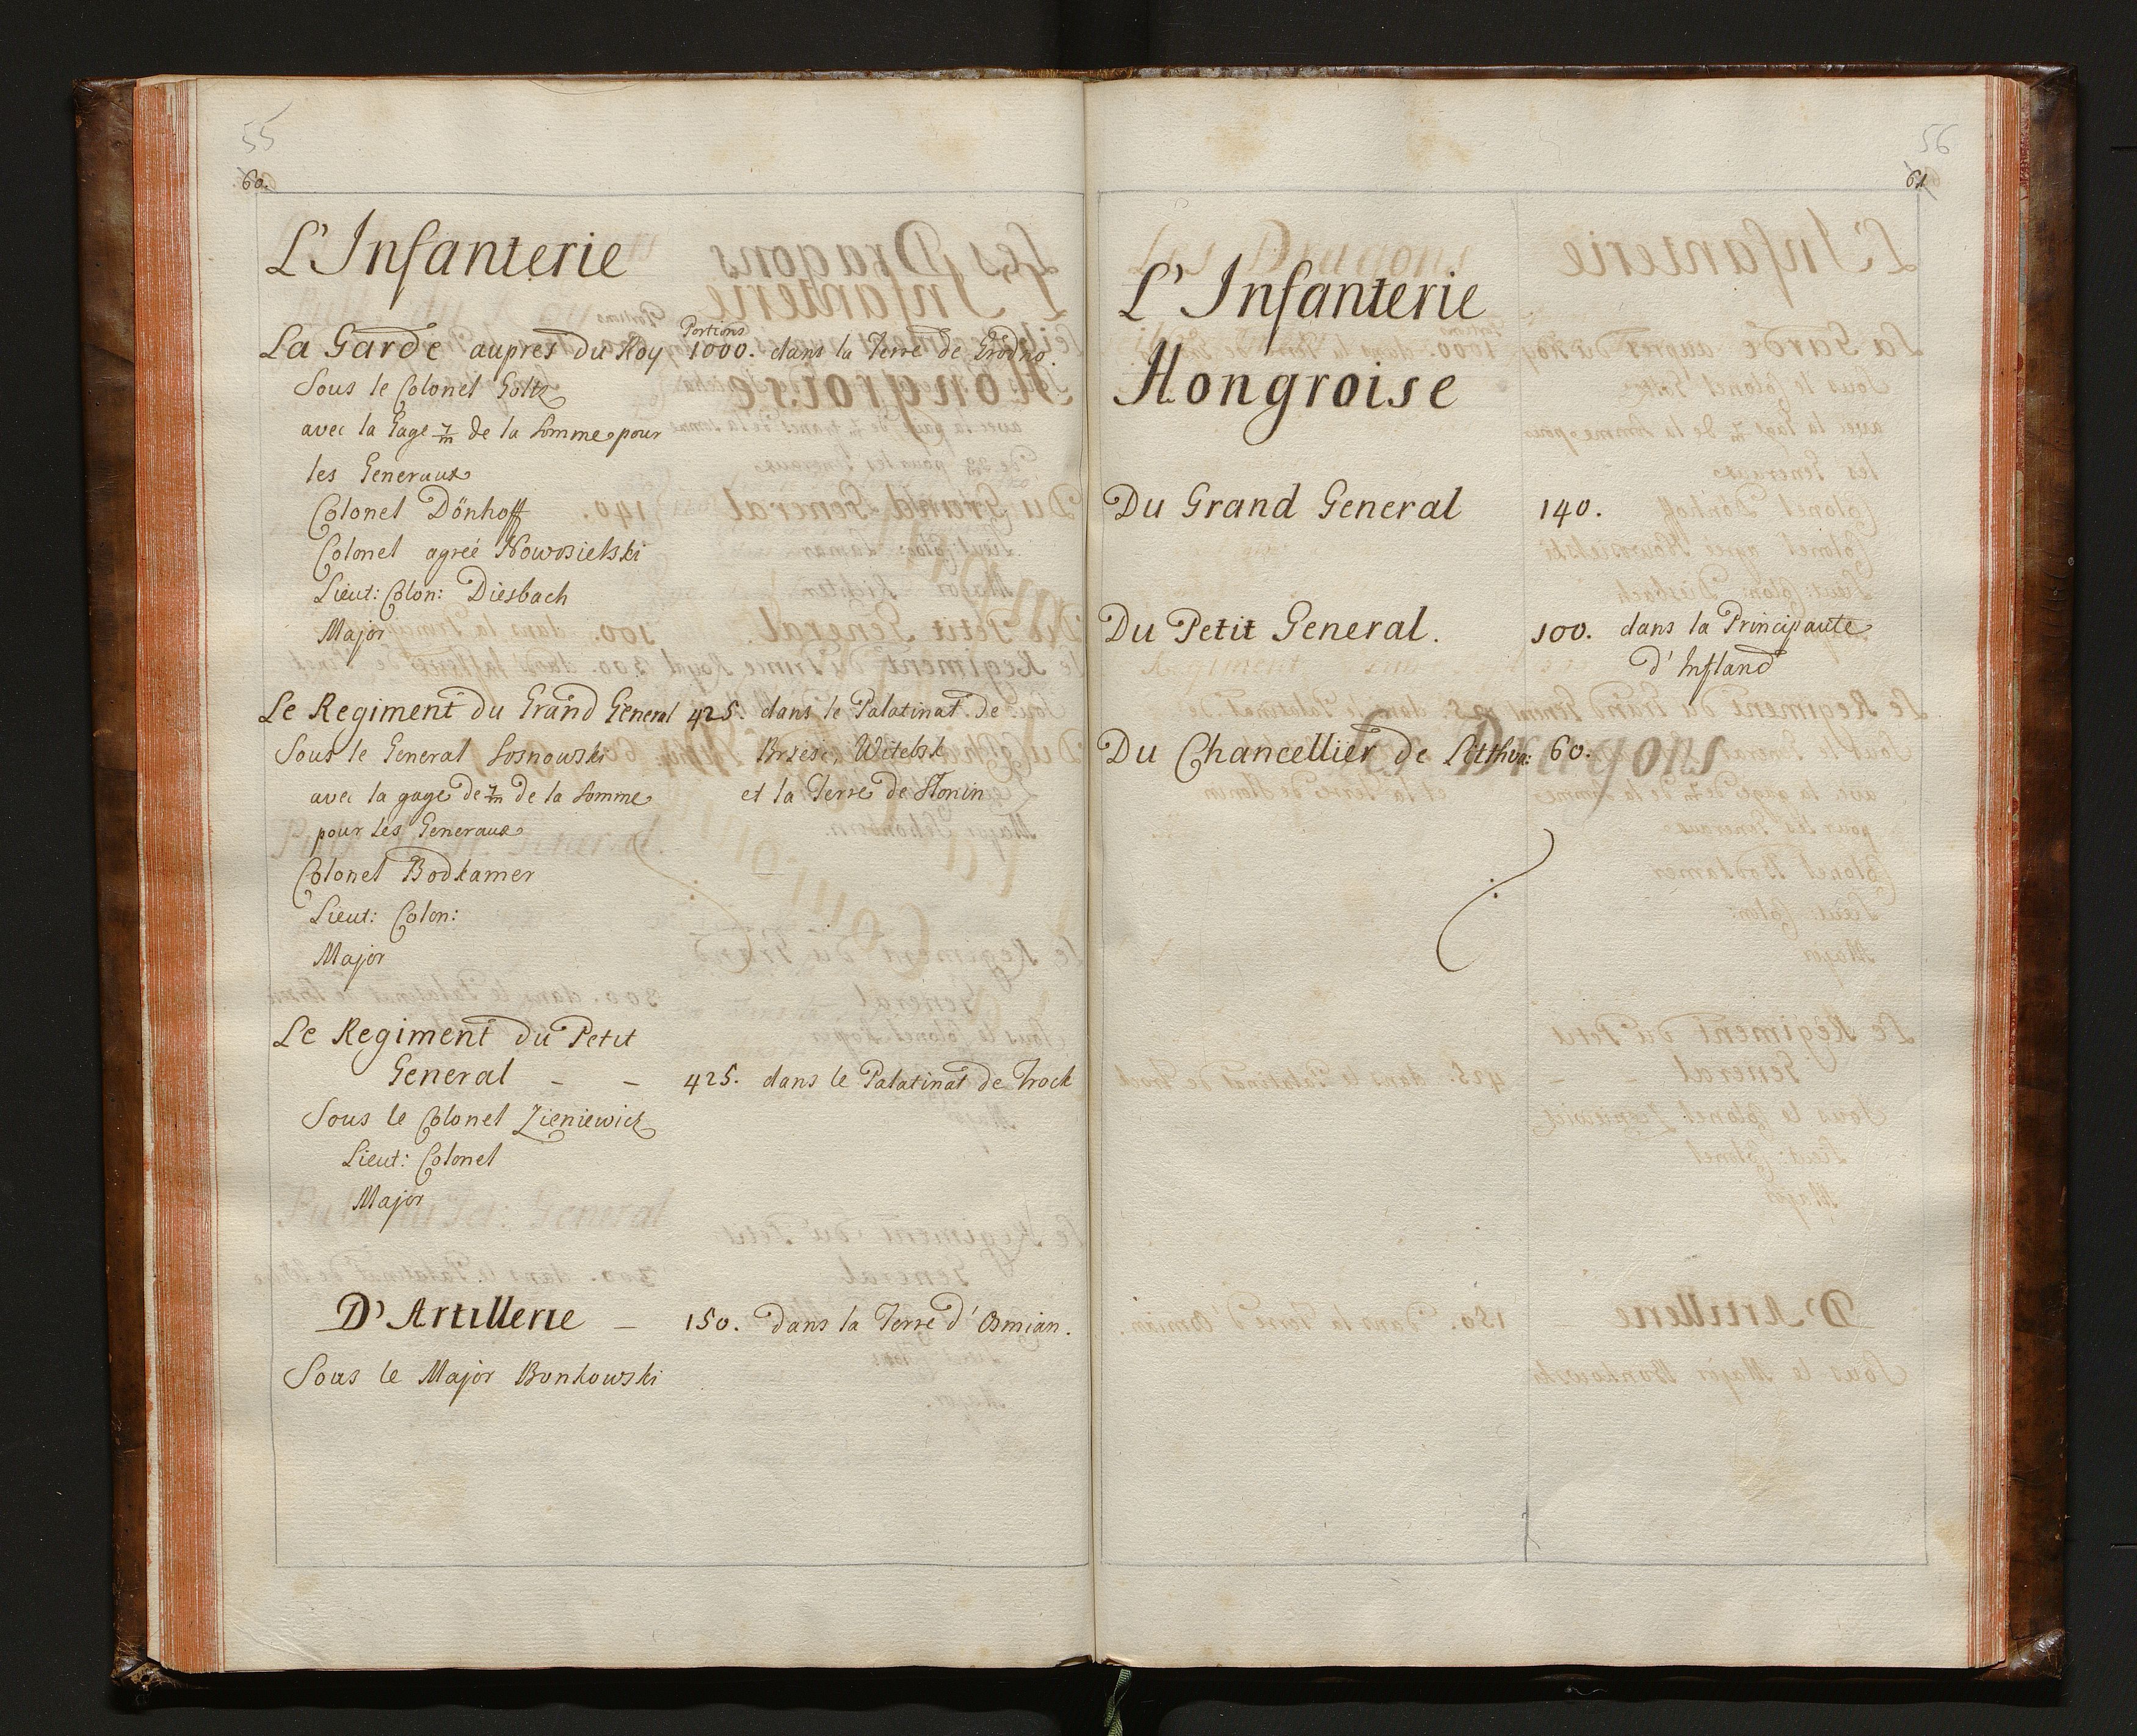 55
60.
L'Infanterie
Portions
La Garde aupres du Roy 1000. dans la Terre de Grodno.
Sous le Colonel Goltz
avec la Gage 7/m de la Somme pour
les Generaux
Colonel Dönhoff
Colonel agreé Nowosielski
Lieut: Colon: Diesbach
Major
Le Regiment du Grand General 425. dans le Palatinat de
Sous le General Sosnowski Brzesc, Witebsk
avec la gage de 7/m de la Somme et la Terre de Slonin
pour les Generaux
Colonel Bodkamer
Lieut: Colon:
Major
Le Regiment du Petit
General - - 425. dans le Palatinat de Trock
Sous le Colonel Zieniewicz
Lieut: Colonel
Major
D'Artillerie - 150. dans la Terre d'Osmian.
Sous le Major Bonkowski
56
61
L'Infanterie
Hongroise
Du Grand General 140.
Du Petit General. 100. dans la Principaute
d'Infland
Du Chancellier de Litthua: 60.